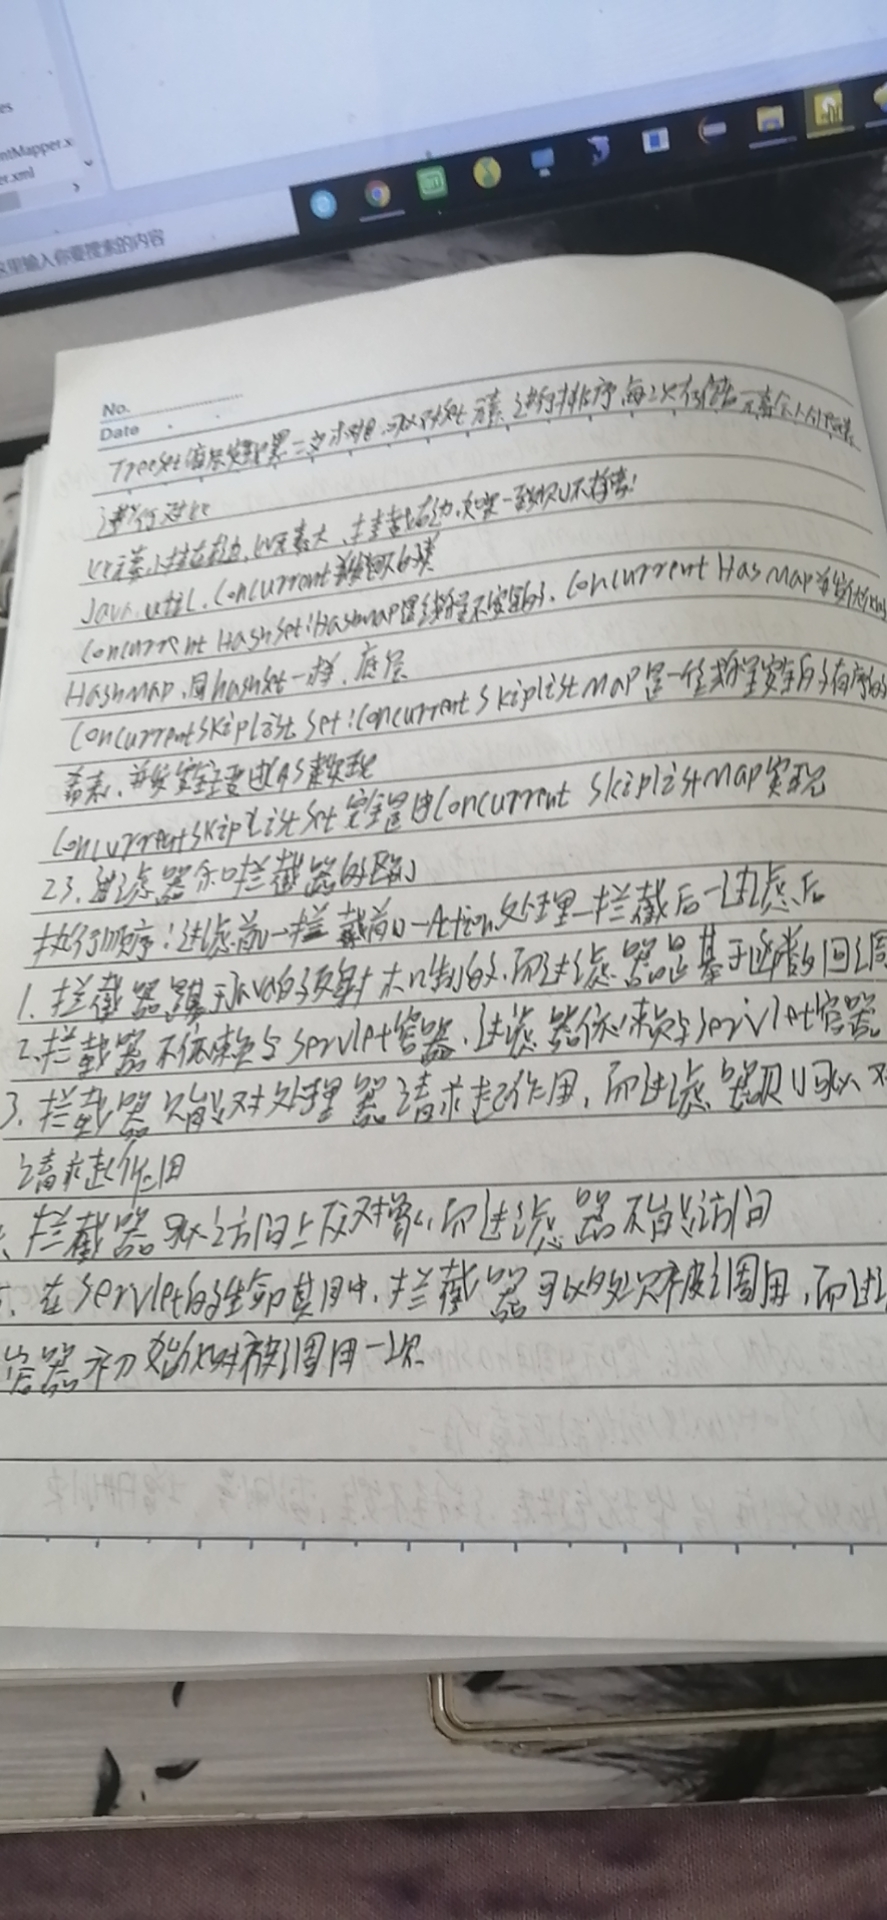 es
ntMapper.x
er.xml
这里输入你要搜索的内容
No.
Date
TreeSet 二叉 set 元素进行排序 每次存储元素
进行对比
元素小 左边, 元素大, 右边, 如果一致则不存储!
Java.util.Concurrent
Concurrent HashSet: Hashmap是线程不安全的, Concurrent HasMap
HashMap, 同hashset一样, 底层
ConcurrentSkiplist Set: Concurrent SkiplistMap是一个线程安全的有序的
并发安全主要由CAS实现
ConcurrentSkiplistSet完全是由Concurrent SkiplistMap实现
23. 过滤器和拦截器的区别
执行顺序: 过滤前一拦截前一Action处理一拦截后一过滤后
1. 拦截器是基于Java的反射机制的, 而过滤器是基于函数回调
2. 拦截器不依赖与Servlet容器, 过滤器依赖与Servlet容器
3. 拦截器只能对处理器请求起作用, 而过滤器则可以对
请求起作用
、拦截器可以访问上下文对象, 而过滤器不能访问
、在Servlet的生命其月中, 拦截器可以多次被调用, 而过
容器初始化时被调用一次